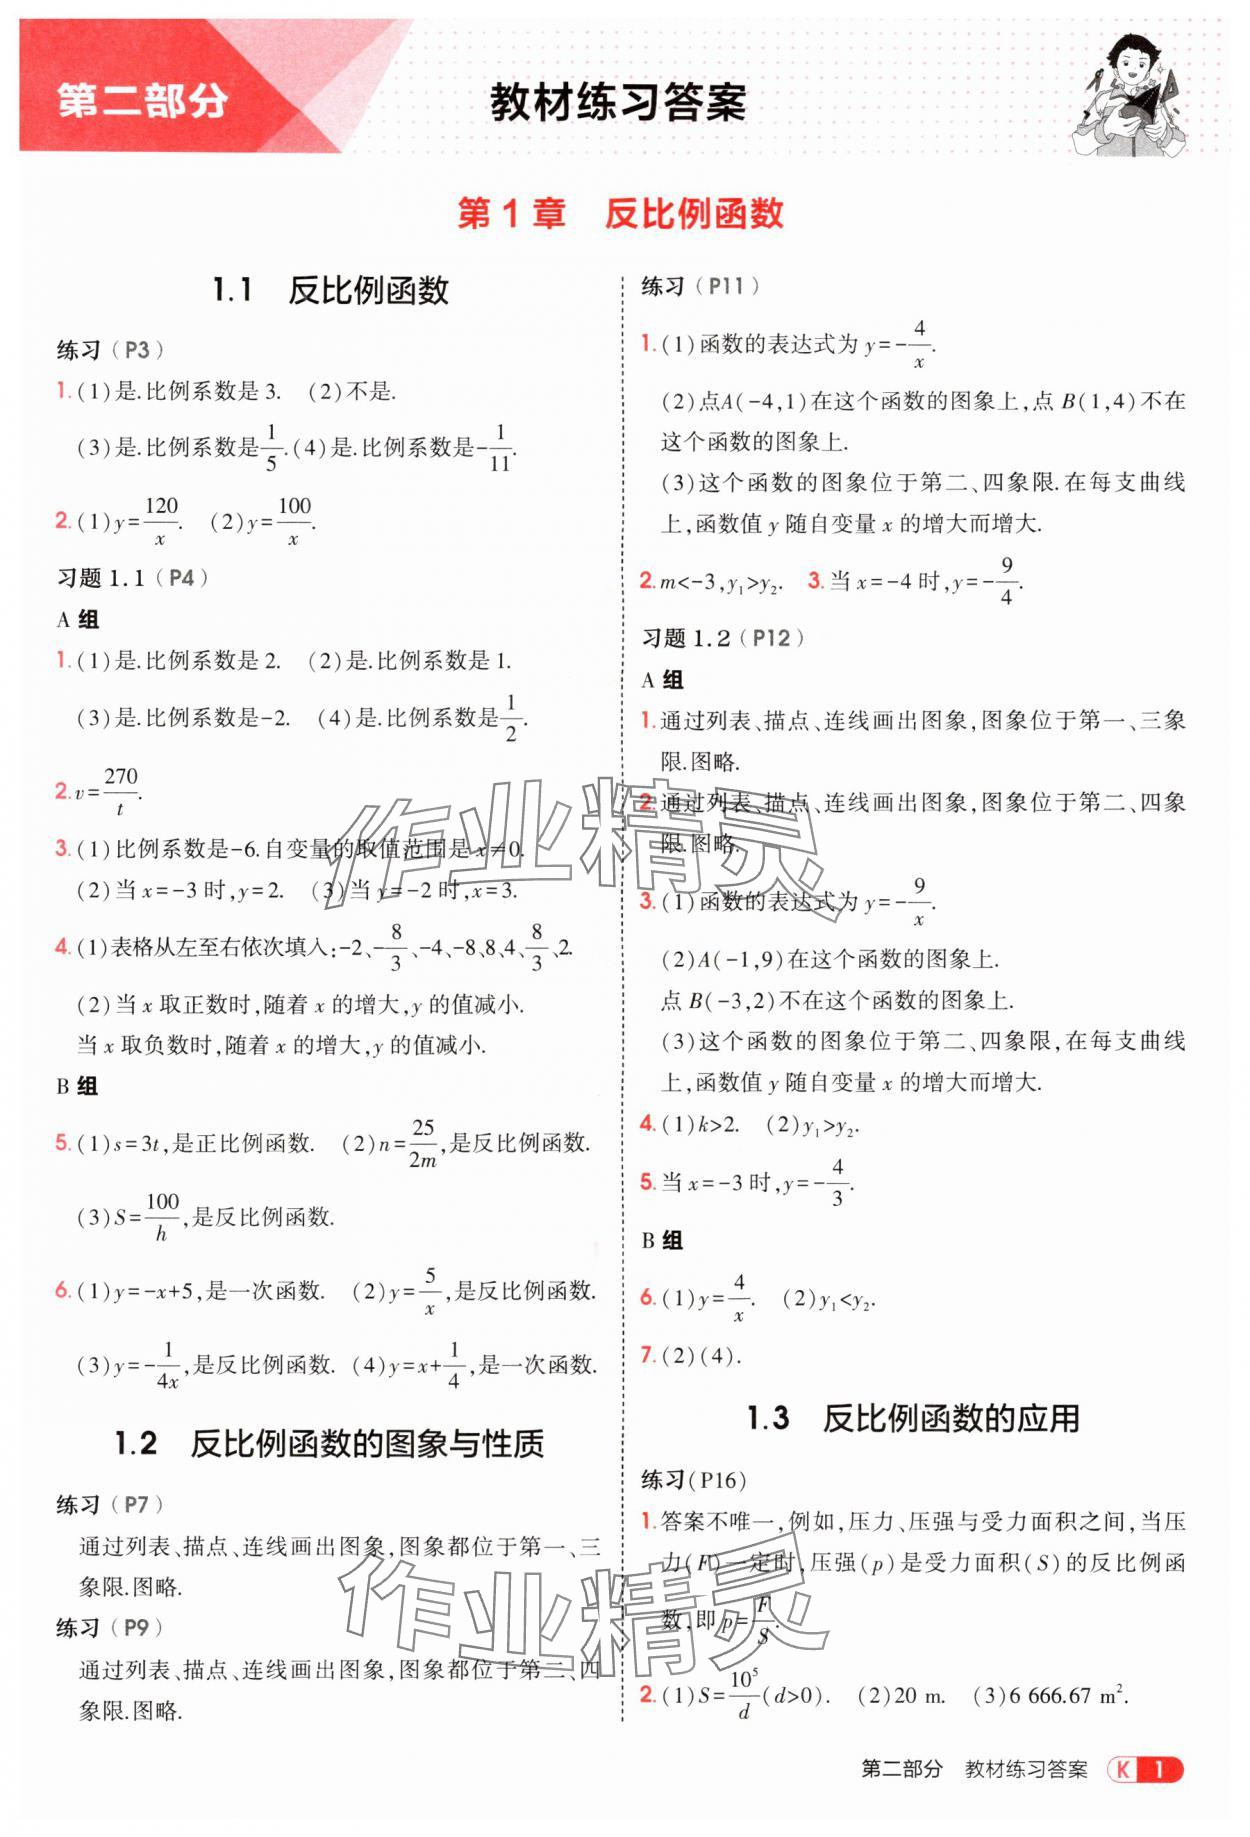 第二部分
教材练习答案
第 1 章　反比例函数
1.1　反比例函数
练习（P3）
1.(1)是.比例系数是 3.　(2)不是.
(3)是.比例系数是1/5.(4)是.比例系数是-1/11.
2.(1)y=120/x.　(2)y=100/x.
习题 1.1（P4）
A 组
1.(1)是.比例系数是 2.　(2)是.比例系数是 1.
(3)是.比例系数是-2.　(4)是.比例系数是1/2.
2.v=270/t.
3.(1)比例系数是-6.自变量的取值范围是 x≠0.
(2)当 x=-3 时,y=2.　(3)当 y=-2 时,x=3.
4.(1)表格从左至右依次填入:-2、-8/3、-4、-8、8、4、8/3、2.
(2)当 x 取正数时,随着 x 的增大,y 的值减小.
当 x 取负数时,随着 x 的增大,y 的值减小.
B 组
5.(1)s=3t,是正比例函数.　(2)n=25/2m,是反比例函数.
(3)S=100/h,是反比例函数.
6.(1)y=-x+5,是一次函数.　(2)y=5/x,是反比例函数.
(3)y=-1/4x,是反比例函数.　(4)y=x+1/4,是一次函数.
1.2　反比例函数的图象与性质
练习（P7）
通过列表、描点、连线画出图象,图象都位于第一、三
象限.图略.
练习（P9）
通过列表、描点、连线画出图象,图象都位于第二、四
象限.图略.
练习（P11）
1.(1)函数的表达式为 y=-4/x.
(2)点A(-4,1)在这个函数的图象上,点 B(1,4)不在
这个函数的图象上.
(3)这个函数的图象位于第二、四象限.在每支曲线
上,函数值 y 随自变量 x 的增大而增大.
2.m<-3,y₁>y₂.　3.当 x=-4 时,y=-9/4.
习题 1.2（P12）
A 组
1.通过列表、描点、连线画出图象,图象位于第一、三象
限.图略.
2.通过列表、描点、连线画出图象,图象位于第二、四象
限.图略.
3.(1)函数的表达式为 y=-9/x.
(2)A(-1,9)在这个函数的图象上.
点 B(-3,2)不在这个函数的图象上.
(3)这个函数的图象位于第二、四象限,在每支曲线
上,函数值 y 随自变量 x 的增大而增大.
4.(1)k>2.　(2)y₁>y₂.
5.当 x=-3 时,y=-4/3.
B 组
6.(1)y=4/x.　(2)y₁<y₂.
7.(2)(4).
1.3　反比例函数的应用
练习(P16)
1.答案不唯一,例如,压力、压强与受力面积之间,当压
力(F)一定时,压强(p)是受力面积(S)的反比例函
数,即 p=F/S.
2.(1)S=10⁵/d(d>0).　(2)20 m.　(3)6 666.67 m².
作业精灵
作业精灵
第二部分　教材练习答案　K 1